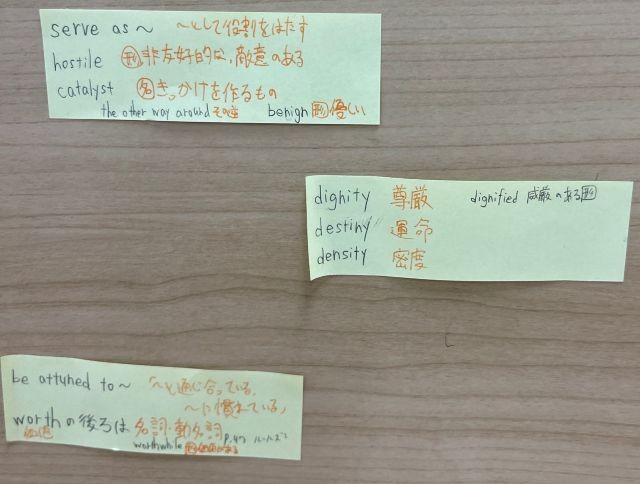 serve as ～ ～として役割をはたす
hostile 形 非友好的な、敵意のある
catalyst 名 きっかけを作るもの
the other way around その逆 benign 形 優しい
dignity 尊厳 dignified 威厳のある 形
destiny 運命
density 密度
be attuned to～ 「～と通じ合っている,
～に慣れている」
worthの後ろは 名詞・動名詞 P.47
worthwhile 形 価値がある